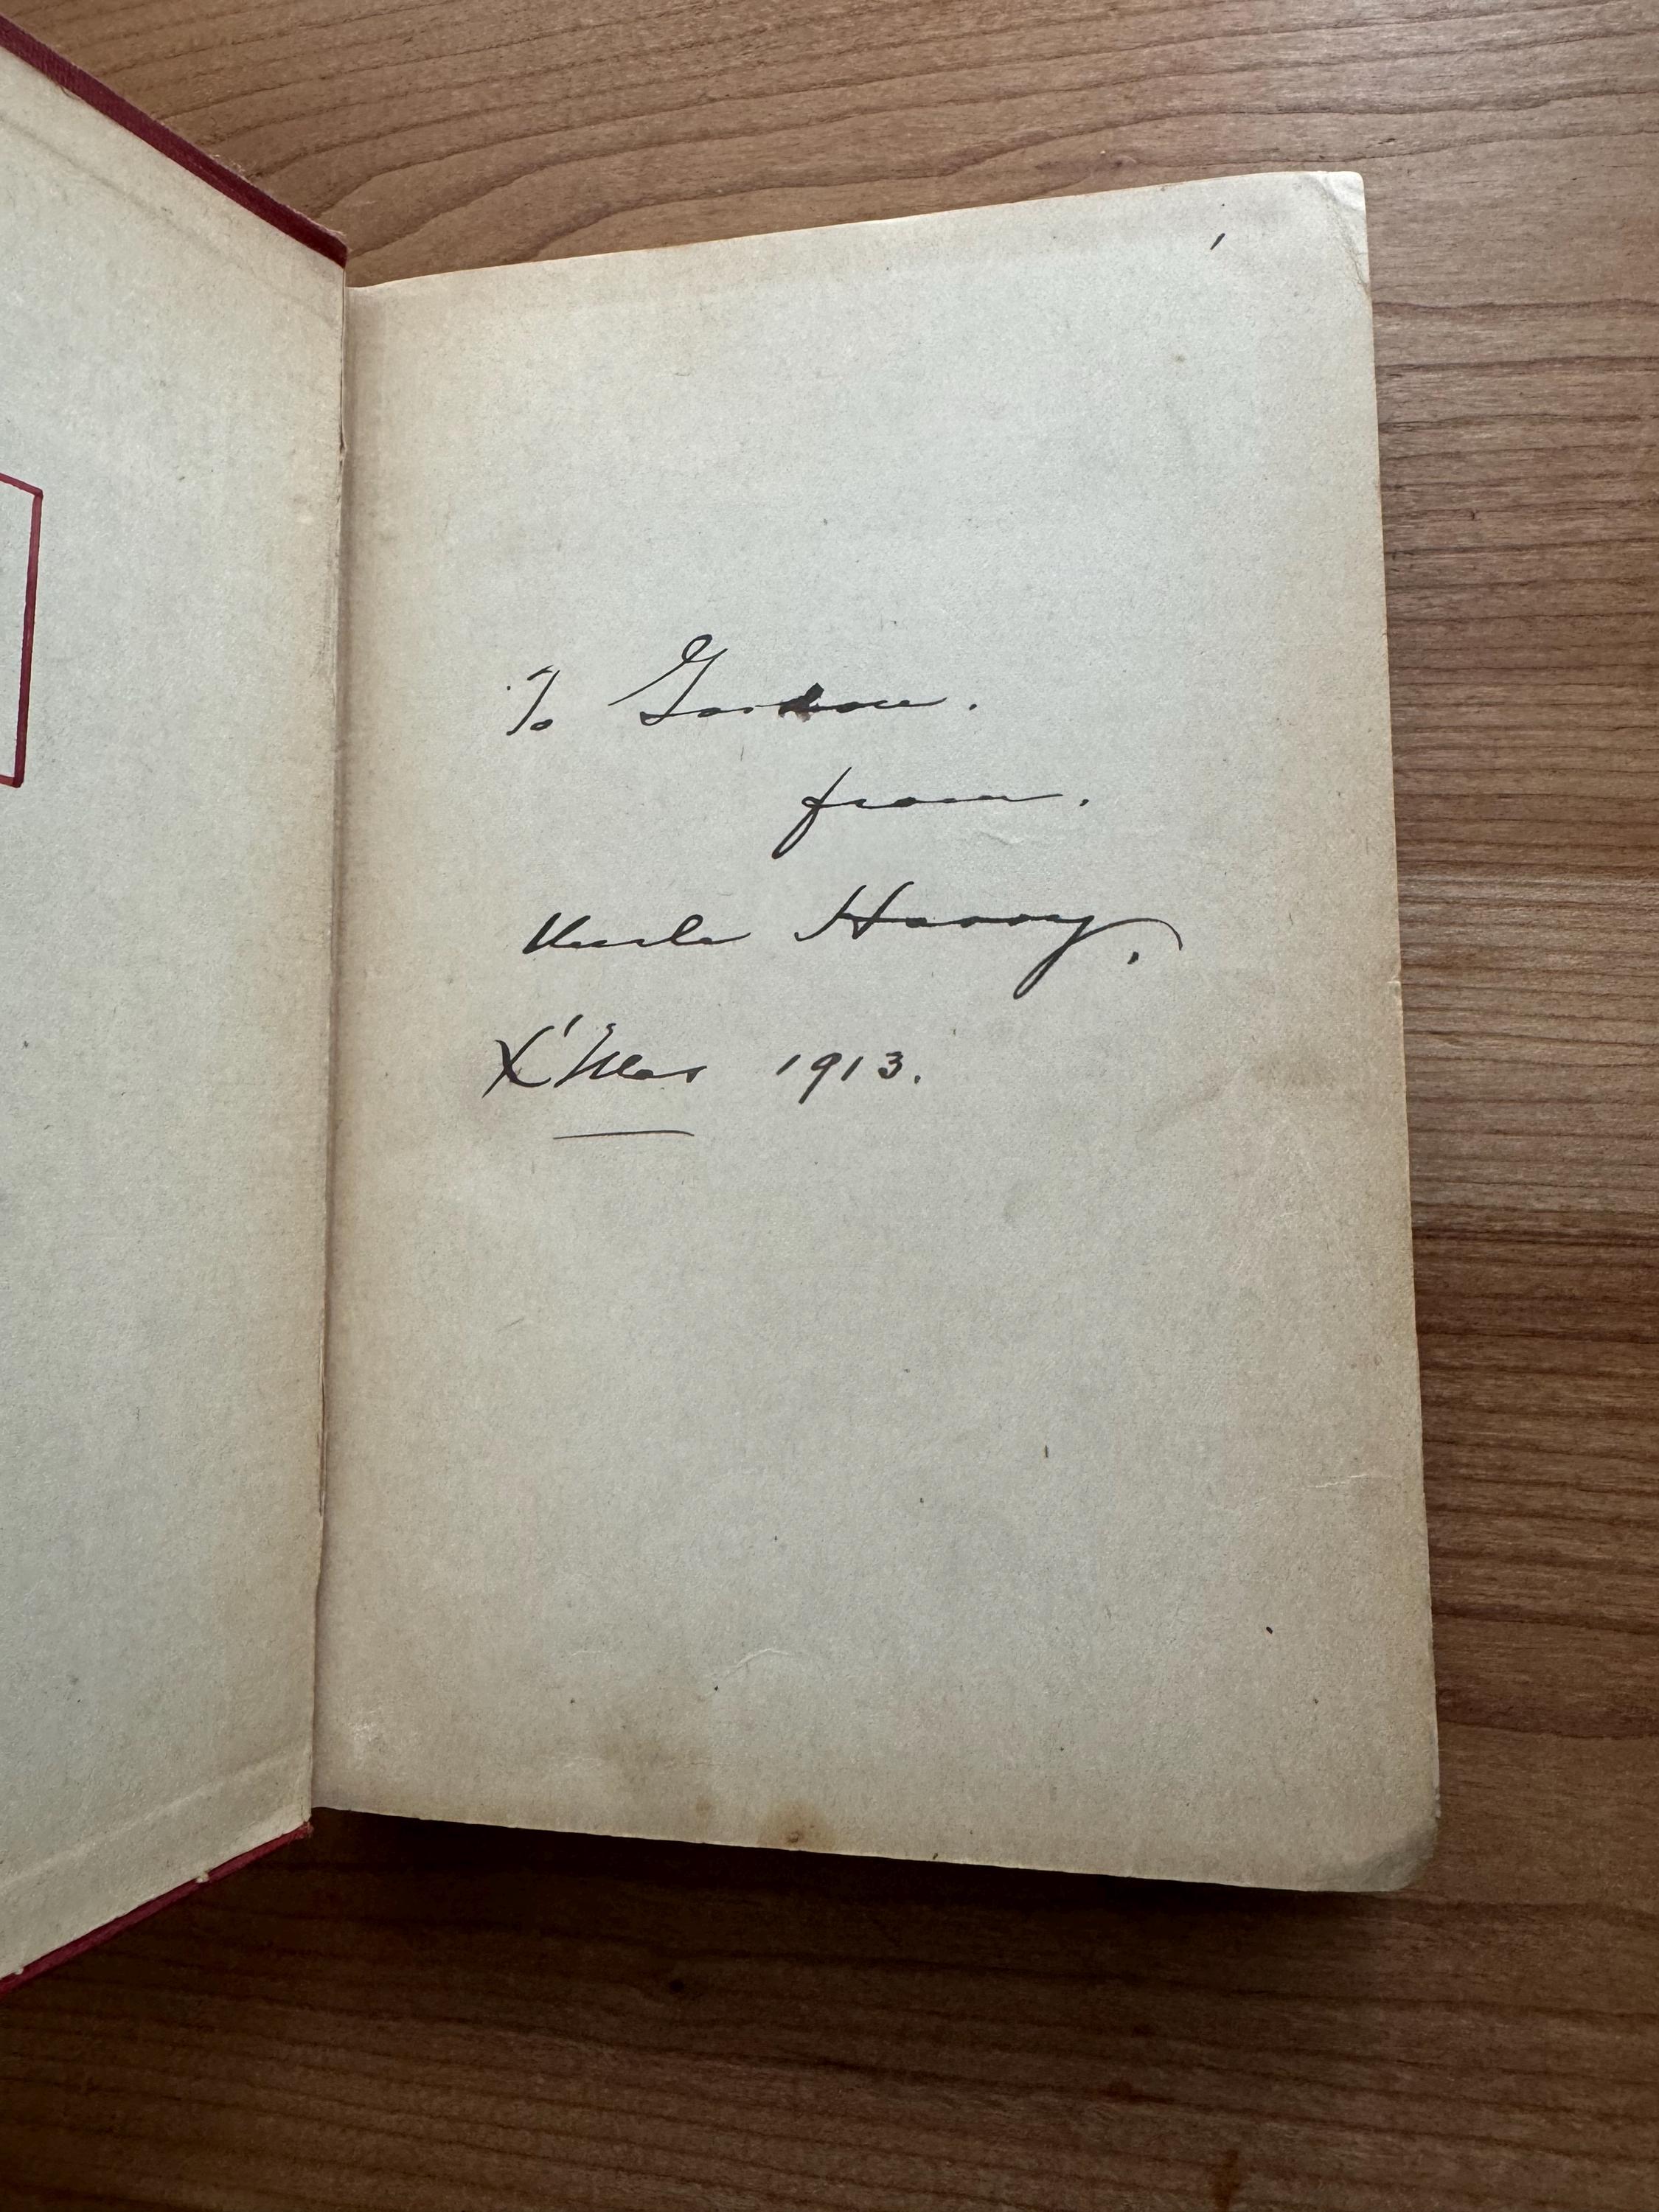 To Gordon.
from.
Uncle Harry.
X'Mas 1913.